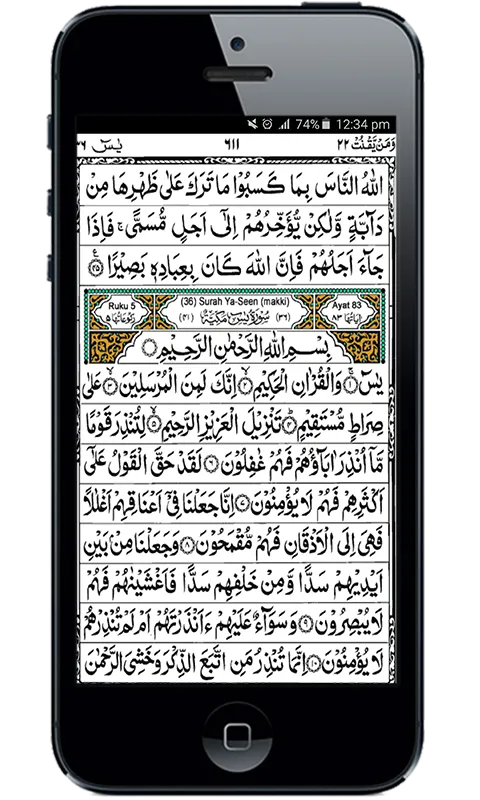 74% 12:34 pm
وَمَنْ يَّقْنُتْ ٢٢ ٦١١ يٰسٓ ٣٦
اللّٰهُ النَّاسَ بِمَا كَسَبُوْا مَا تَرَكَ عَلٰى ظَهْرِهَا مِنْ
دَآبَّةٍ وَّلٰكِنْ يُّؤَخِّرُهُمْ اِلٰٓى اَجَلٍ مُّسَمًّى ۚ فَاِذَا
جَآءَ اَجَلُهُمْ فَاِنَّ اللّٰهَ كَانَ بِعِبَادِهٖ بَصِيْرًا ﴿٤٥﴾
Ruku 5 (36) Surah Ya-Seen (makki) Ayat 83
اٰيَاتُهَا ٨٣ (٣٦) سُوْرَةُ يٰسٓ مَكِّيَّةٌ (٤١) رُكُوْعَاتُهَا ٥
بِسْمِ اللّٰهِ الرَّحْمٰنِ الرَّحِيْمِ
يٰسٓ ﴿١﴾ وَالْقُرْاٰنِ الْحَكِيْمِ ﴿٢﴾ اِنَّكَ لَمِنَ الْمُرْسَلِيْنَ ﴿٣﴾ عَلٰى
صِرَاطٍ مُّسْتَقِيْمٍ ﴿٤﴾ تَنْزِيْلَ الْعَزِيْزِ الرَّحِيْمِ ﴿٥﴾ لِتُنْذِرَ قَوْمًا
مَّآ اُنْذِرَ اٰبَآؤُهُمْ فَهُمْ غٰفِلُوْنَ ﴿٦﴾ لَقَدْ حَقَّ الْقَوْلُ عَلٰٓى
اَكْثَرِهِمْ فَهُمْ لَا يُؤْمِنُوْنَ ﴿٧﴾ اِنَّا جَعَلْنَا فِيْٓ اَعْنَاقِهِمْ اَغْلٰلًا
فَهِيَ اِلَى الْاَذْقَانِ فَهُمْ مُّقْمَحُوْنَ ﴿٨﴾ وَجَعَلْنَا مِنْۢ بَيْنِ
اَيْدِيْهِمْ سَدًّا وَّمِنْ خَلْفِهِمْ سَدًّا فَاَغْشَيْنٰهُمْ فَهُمْ
لَا يُبْصِرُوْنَ ﴿٩﴾ وَسَوَآءٌ عَلَيْهِمْ ءَاَنْذَرْتَهُمْ اَمْ لَمْ تُنْذِرْهُمْ
لَا يُؤْمِنُوْنَ ﴿١٠﴾ اِنَّمَا تُنْذِرُ مَنِ اتَّبَعَ الذِّكْرَ وَخَشِيَ الرَّحْمٰنَ